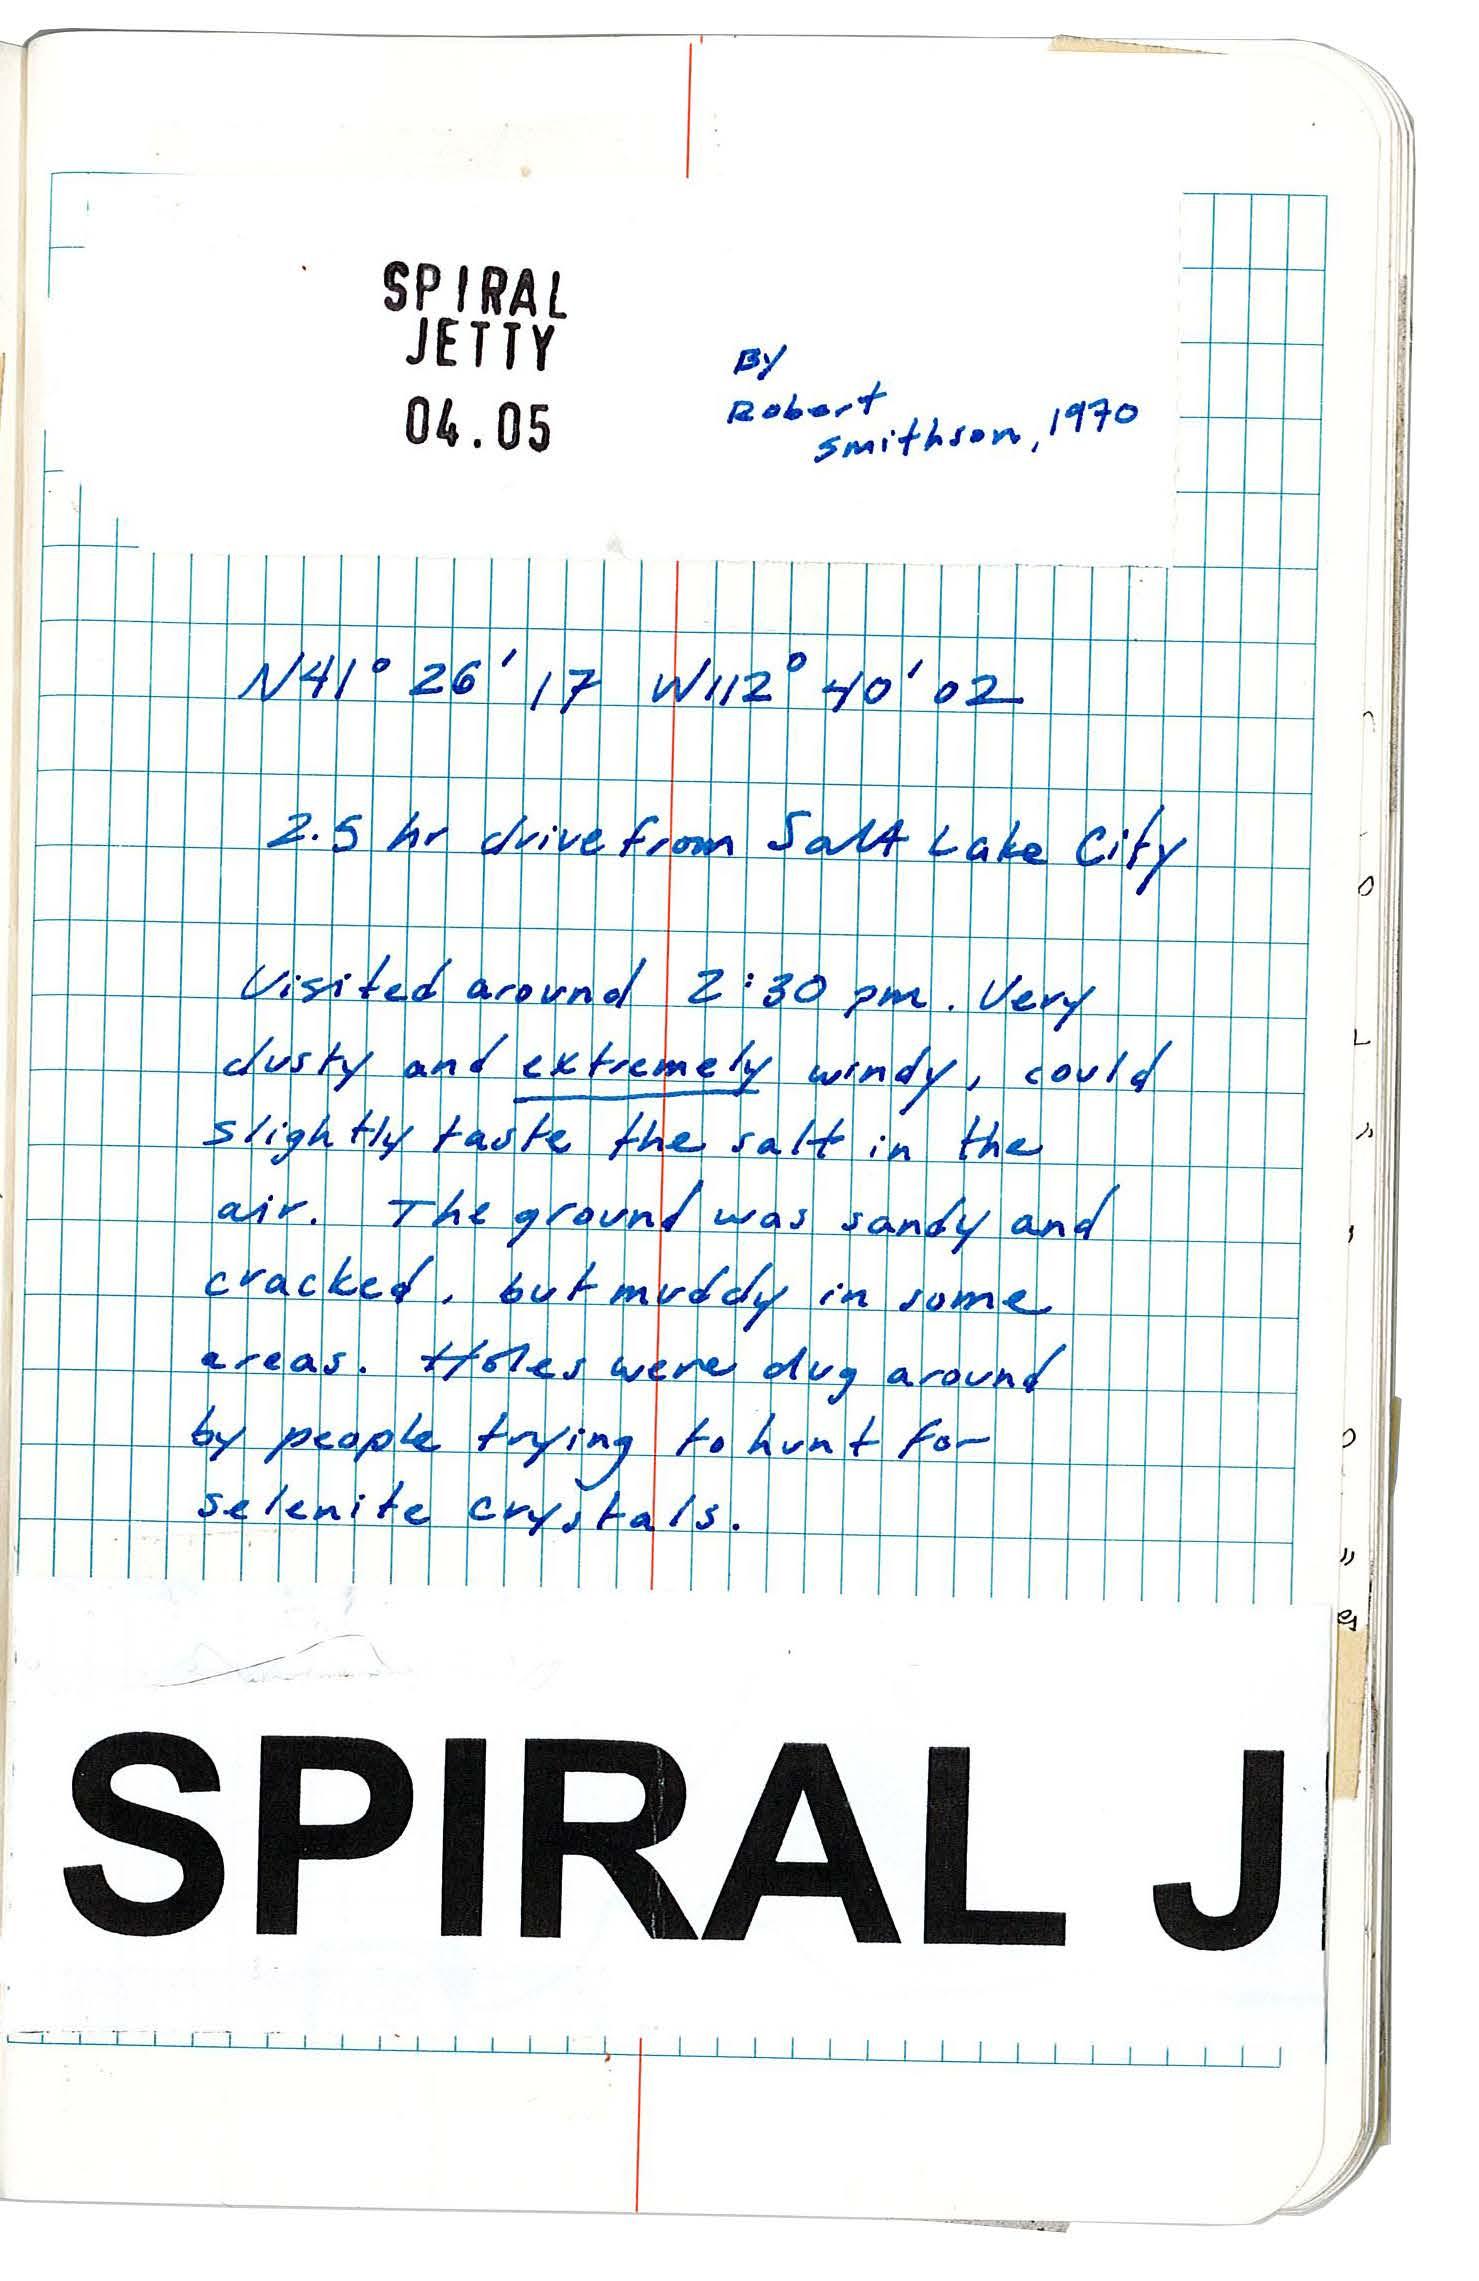 SPIRAL
JETTY
04.05
By
Robert
Smithson, 1970
N41° 26' 17 W112° 40' 02
2.5 hr drive from Salt Lake City
Visited around 2:30 pm. Very
dusty and extremely windy, could
slightly taste the salt in the
air. The ground was sandy and
cracked, but muddy in some
areas. Holes were dug around
by people trying to hunt for
selenite crystals.
SPIRAL J